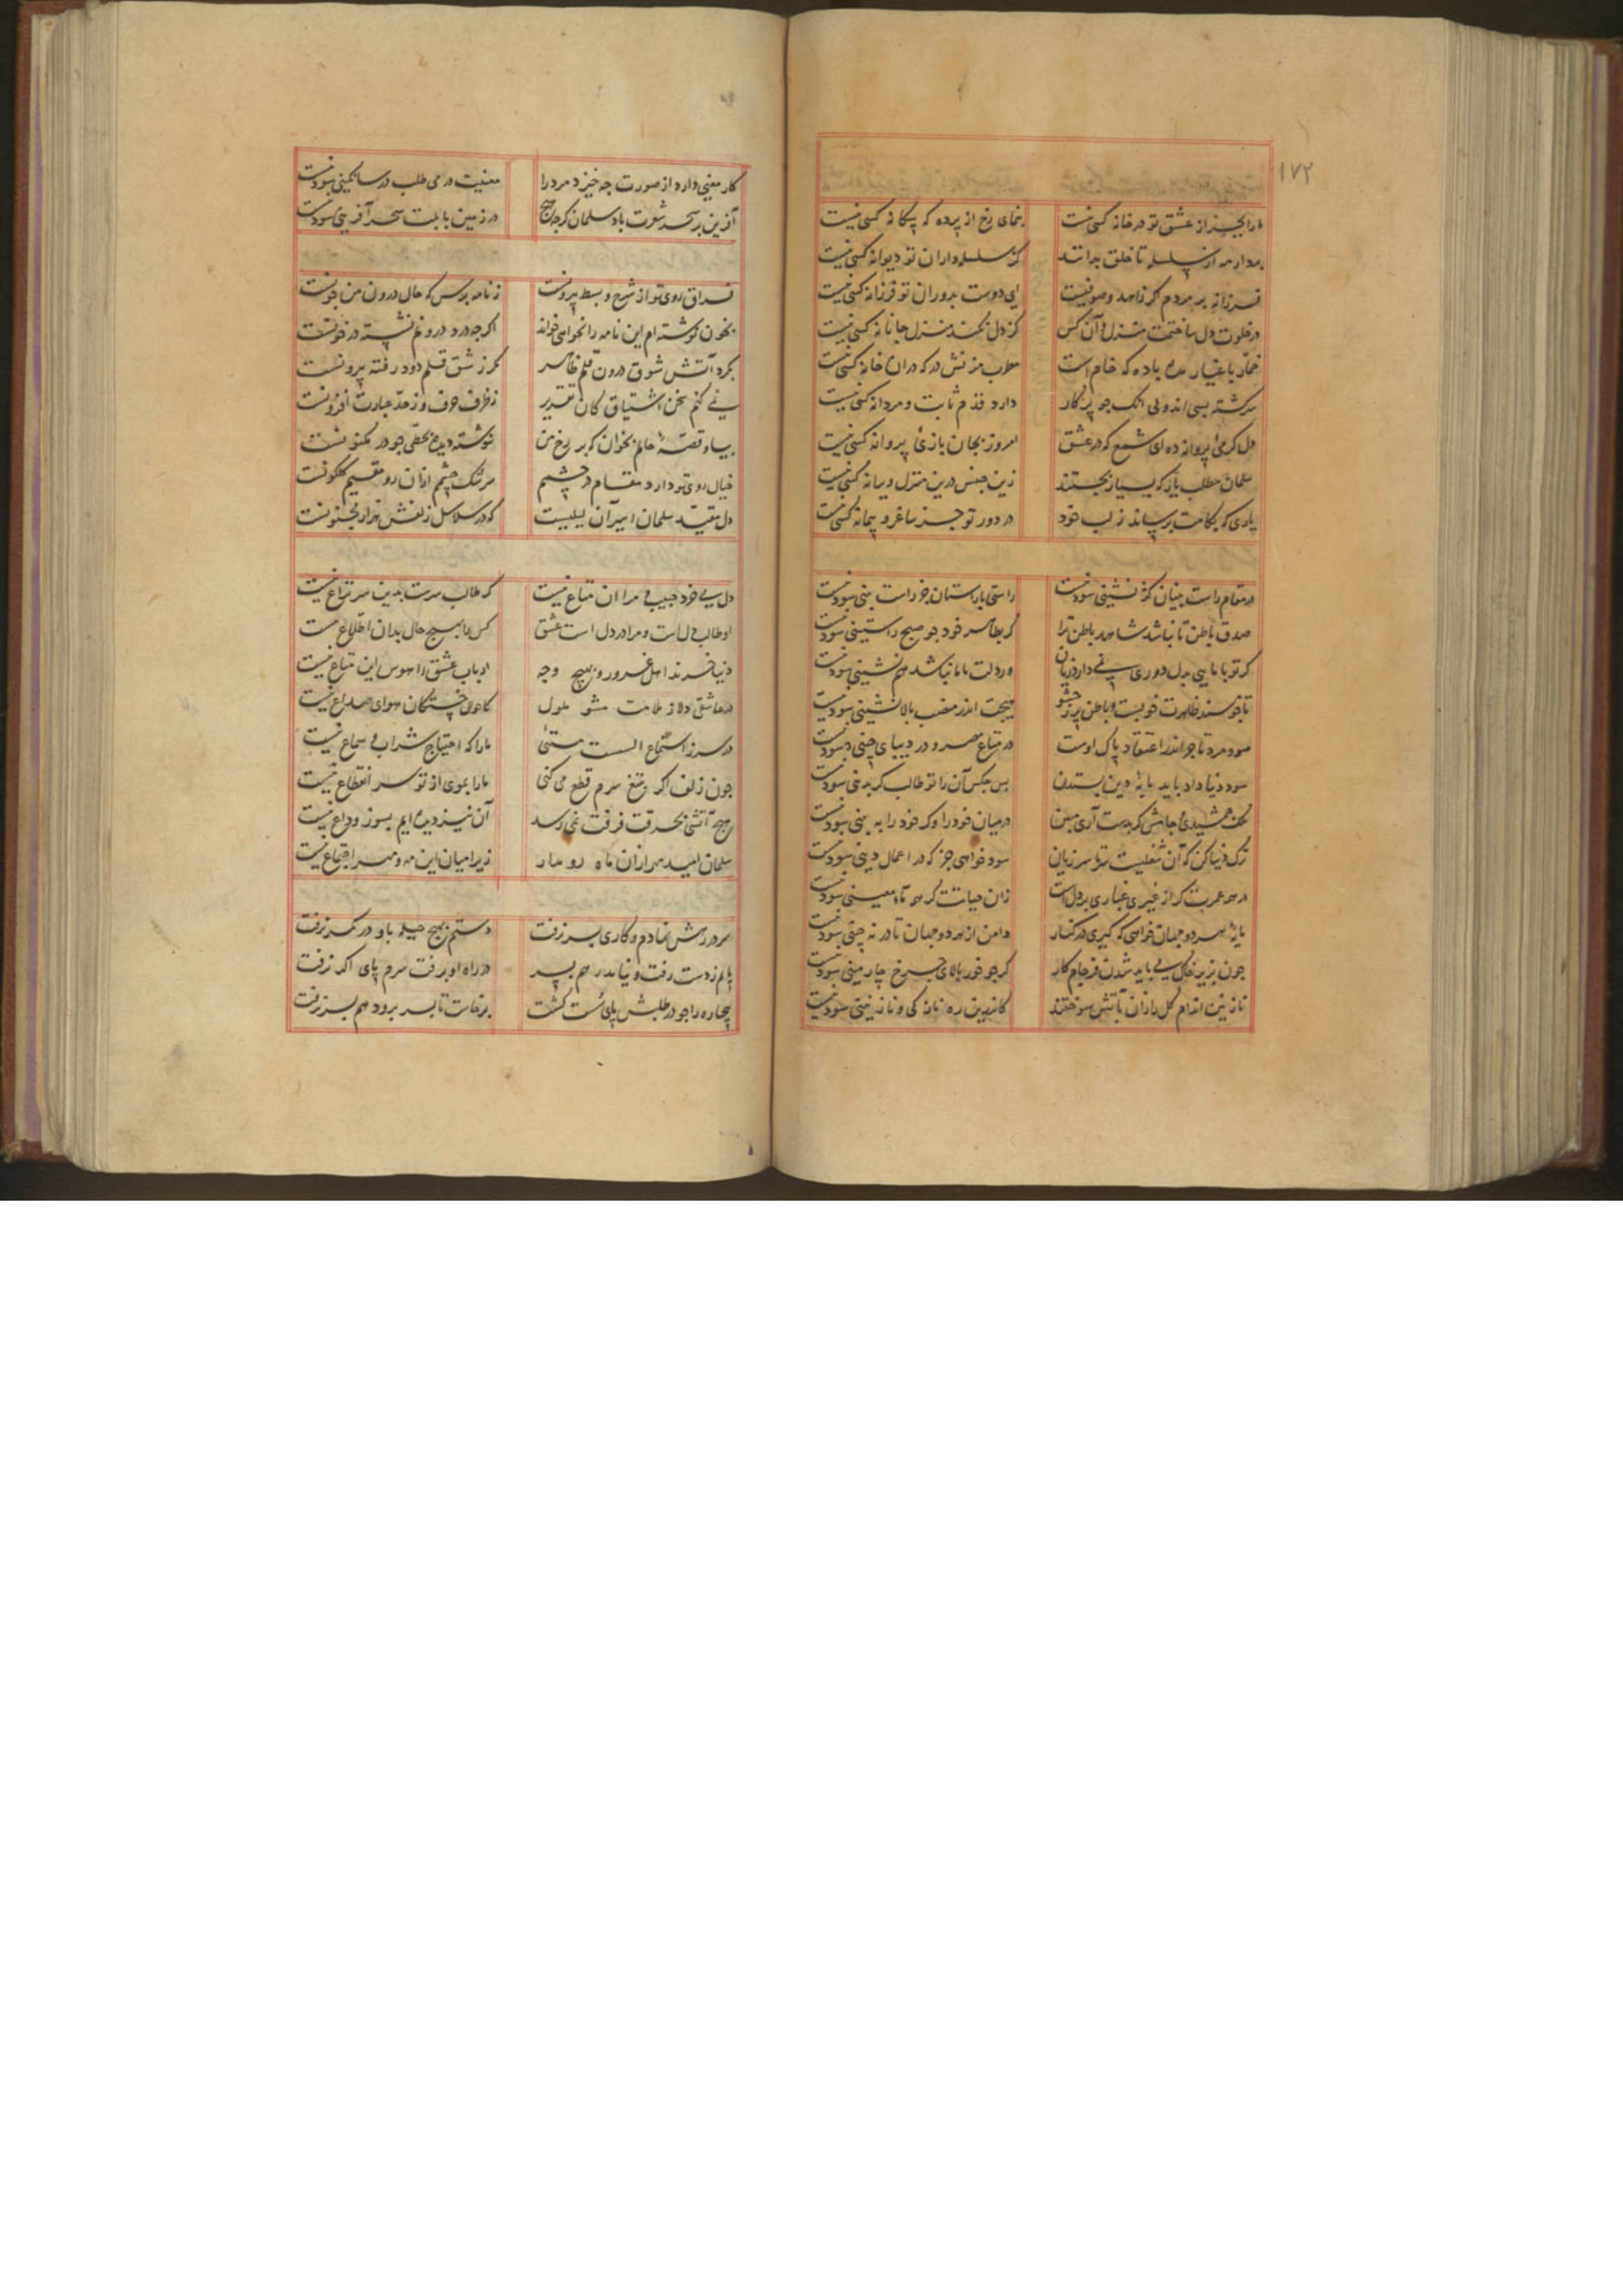 ۱۷۲
ما را بجز از عشق تو در خانه کسی نیست بنمای رخ از پرده که بیگانه کسی نیست
بردار مه از سلسله تا خلق بدانند کز سلسله داران تو دیوانه کسی نیست
فرزانه بر مردم اگر زاهد و صوفیست ای دوست بدوران تو فرزانه کسی نیست
در خلوت دل ساختمت منزل و آن کس کز دل نکند منزل جانانه کسی نیست
خمار باغیار مده باده که خام است مزنش در که در آن خانه کسی نیست
سرکشته بسی اند ولی آنک جو پرکار دارد قدم ثابت و مردانه کسی نیست
دل کرمی پروانه ده ای شمع که در عشق امروز بجان بازی پروانه کسی نیست
سلمان مطلب یار که بسیار بجستند زین جنس درین منزل ویرانه کسی نیست
یاری که بکامت برساند ز لب خود در دور تو جز ساغر و پیمانه کسی نیست
در مقام راست بینان کژ نشینی سود نیست راستی با راستان جز راست بینی سود نیست
صدق باطن تا نباشد شاهد باطن ترا کر بظاهر خود جو صبح راستینی سود نیست
کر تو با مایی بدل دوری نمی دارد زیان ور دلت با ما نباشد هم نشینی سود نیست
هیچت اندر منصب بالا نشینی سود نیست
سود مرد تاجر اندر اعتقاد پاک اوست در متاع مصر و در دیبای چینی سود نیست
سود دنیا داد باید مایهٔ دین بستدن
ملک جمشیدی و جامش کر بدست آری مبین در میان خود را و کر خود را به بینی سود نیست
ترک دنیا کن که آن شغلیست سرتاسر زیان سود خواهی جز که در اعمال دینی سود نیست
در همه عمرت کر از غیری غباری بر دل است زان حیاتت کر همه ماء معینی سود نیست
مایهٔ هر دو جهان خواهی که کیری در کنار دامن از هر دو جهان تا در نه چینی سود نیست
جون بزیر خاک می باید شدن فرجام کار کر جو خور بالای چرخ چارمینی سود نیست
نازنین اندام کل را زان بآتش سوختند کاندرین ره نازکی و نازنینی سود نیست
کار معنی دارد از صورت چه خیزد مرد را معنیت در می طلب در ساتکینی سود نیست
آفرین بر سحر شعرت باد سلمان کر چه هیچ در زمین بابلت سحر آفرینی سود نیست
فراق روی تو از شرح و بسط بیرونست ز نامه پرس که حال درون من چونست
بخون نوشته ام این نامه را نخواهی خواند اکر چه درد درونم نشسته در خونست
بکرد آتش شوق درون قلم ظاهر کر شق قلم دود رفته بیرونست
نمی کنم سخن اشتیاق کان تقریر ز ظرف حرف و ز حد عبارت افزونست
بیا و قصهٔ حالم بخوان که بر رخ من نوشته دیده بخطی جو در مکنونست
خیال روی تو دارد مقام در چشم سرشک چشم ازان رو مقیم کلکونست
دل مقید سلمان اسیر آن لیلیست که در سلاسل زلفش هزار مجنونست
که طالب سرست بدین سر نزاع نیست
او طالب دل است و مرا در دل است عشق کس را بهیچ حال بدان اطلاع نیست
دنیا خرند اهل غرور و بهیچ وجه ارباب عشق را هوس این متاع نیست
در عاشقی دلا ز ملامت مشو ملول کاحوال خستکان هوای صداع نیست
در سر ز استماع الست مستی ما را که احتیاج شراب و سماع نیست
جون زلف اکر بتیغ سرم قطع می کنی ما را بموی از تو سر انقطاع نیست
هیچ آتشی بحرقت فرقت نمی رسد آن نیز دیده ایم بسوز وداع نیست
سلمان امید مهر ازان ماه رو مدار زیرا میان این مه و مهر اجتماع نیست
سر در رهش نهادم و کاری بسر نرفت دستم بهیچ حیله باو در کمر نرفت
پایم ز دست رفت و نیامد رهم بسر در راه او برفت سرم پای اکر نرفت
بیچاره را جو در طلبش پای سست کشت برخاست تا بسر برود هم بسر نرفت